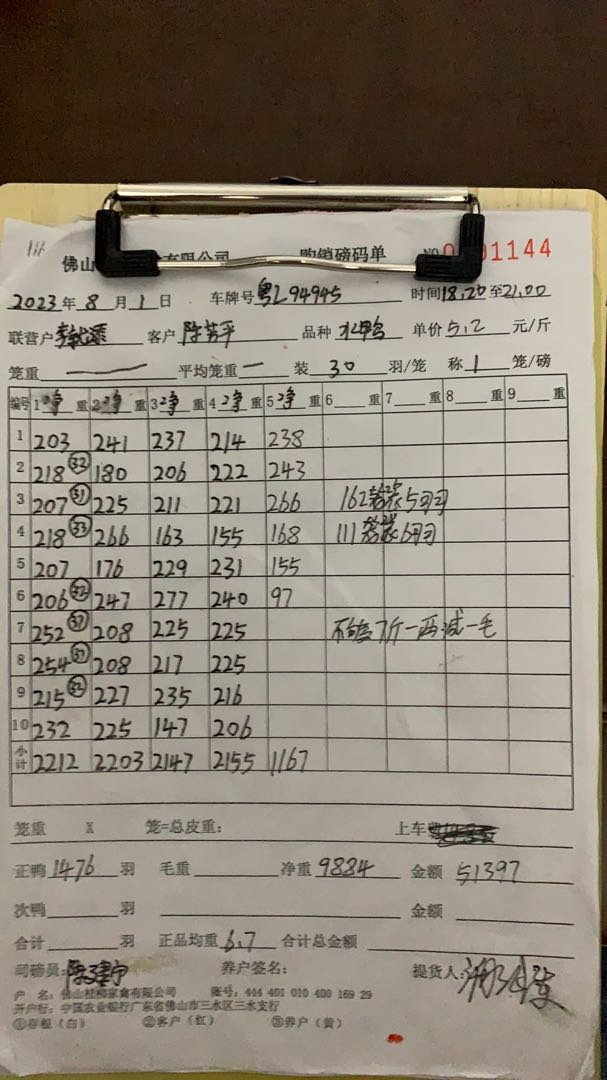 佛山 有限公司 购销磅码单 NO 01144
2023年8月1日 车牌号粤L94945 时间18.20至21.00
联营户 客户 陈 平 品种 水鸭 单价5.2元/斤
笼重 平均笼重 一 装 30 羽/笼 称 1 笼/磅
编号 1净重 2净重 3净重 4净重 5净重 6 重 7 重 8 重 9 重
1 203 241 237 214 238
2 218 (32) 180 206 222 243
3 207 (31) 225 211 221 266 162 笼装5羽
4 218 (33) 266 163 155 168 111 笼装6羽
5 207 176 229 231 155
6 206 (32) 247 277 240 97
7 252 (37) 208 225 225 不够7斤一两减一毛
8 254 (37) 208 217 225
9 215 (32) 227 235 216
10 232 225 147 206
小计 2212 2203 2147 2155 1167
笼重 X 笼=总皮重: 上车
正鸭 1476 羽 毛重 净重 9884 金额 51397
次鸭 羽 金额
合计 羽 正品均重 6.7 合计总金额
司磅员: 陈 养户签名: 提货人:
户 名: 佛山桂柳家禽有限公司 账号: 444 401 010 400 169 29
开户行: 中国农业银行广东省佛山市三水区三水支行
①存根(白) ②客户(红) ③养户(黄)